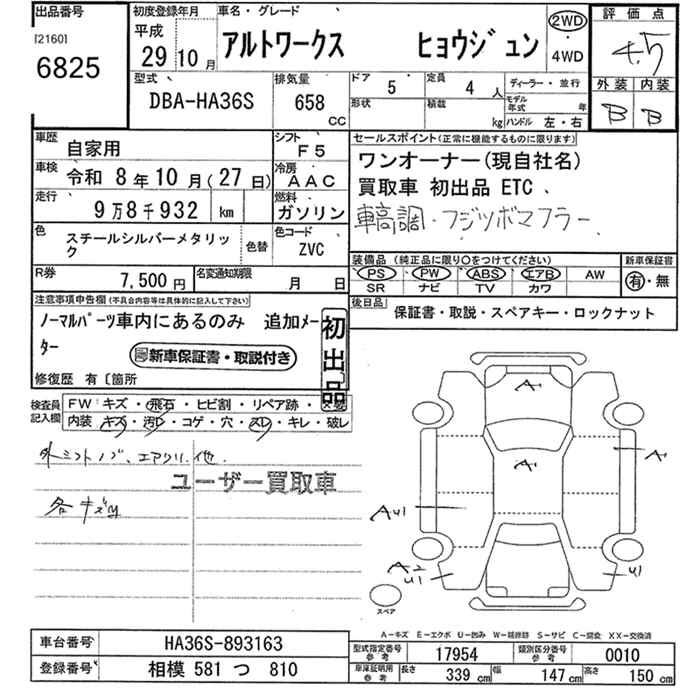 出品番号
[2160]
6825
初度登録年月
平成
29 10月
車名・グレード
アルトワークス ヒョウジュン
2WD
・
4WD
評価点
4.5
外装 内装
B B
型式
DBA-HA36S
排気量
658
CC
ドア
5
定員
4 人
形状
積載
kg
ディーラー・並行
モデル年式 年
ハンドル 左・右
車歴
自家用
シフト
F5
車検
令和 8年10月(27日)
冷房
AAC
走行
9万8千932 km
燃料
ガソリン
色
スチールシルバーメタリック
色替
色コード
ZVC
R券
7,500円
名変通知期限
月 日
セールスポイント(正常に機能するものに限ります)
ワンオーナー(現自社名)
買取車 初出品 ETC、
車高調・フジツボマフラー
装備品 (純正品に限り○をつけてください)
PS PW ABS エアB AW
SR ナビ TV カワ
新車保証書
有・無
後日品
保証書・取説・スペアキー・ロックナット
注意事項申告欄(不具合内容等は具体的に記入して下さい)
ノーマルパーツ車内にあるのみ 追加メー
ター
新車保証書・取説付き
初出品
修復歴 有〔箇所
検査員
記入欄
FW・キズ・飛石・ヒビ割・リペア跡・
内装・キズ・汚レ・コゲ・穴・スレ・キレ・破レ
外シフトノブ、エアクリ、他
ユーザー買取車
各キズ凹
A
A
A
AU1
A2
U1
U1
スペア
A−キズ E−エクボ U−凹み W−補修跡 S−サビ C−腐食 XX−交換済
車台番号
HA36S-893163
登録番号
相模 581 つ 810
型式指定番号
参考
17954
類別区分番号
参考
0010
車庫証明用
参考
長さ 339cm 幅 147cm 高さ 150cm